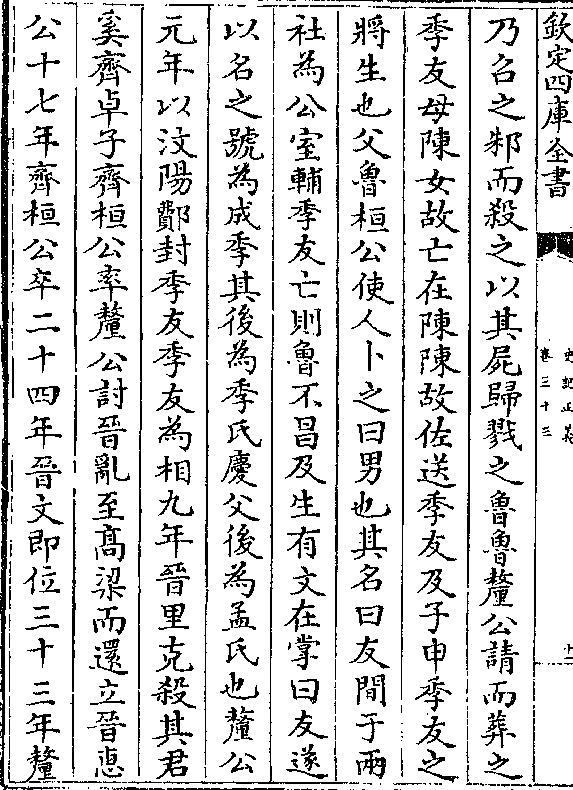 欽定四庫全書
史記正義
卷三十三
十一
乃召之邾而殺之以其屍歸戮之魯魯釐公請而葬之
季友母陳女故亡在陳陳故佐送季友及子申季友之
將生也父魯桓公使人卜之曰男也其名曰友間于兩
社為公室輔季友亡則魯不昌及生有文在掌曰友遂
以名之號為成季其後為季氏慶父後為孟氏也釐公
元年以汶陽鄪封季友季友為相九年晉里克殺其君
奚齊卓子齊桓公率釐公討晉亂至高梁而還立晉惠
公十七年齊桓公卒二十四年晉文即位三十三年釐